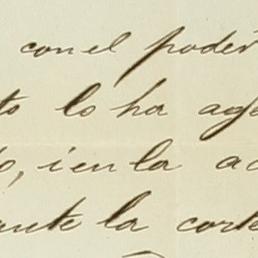 con el poder
to lo ha ag
o, i en la ac
ante la corte